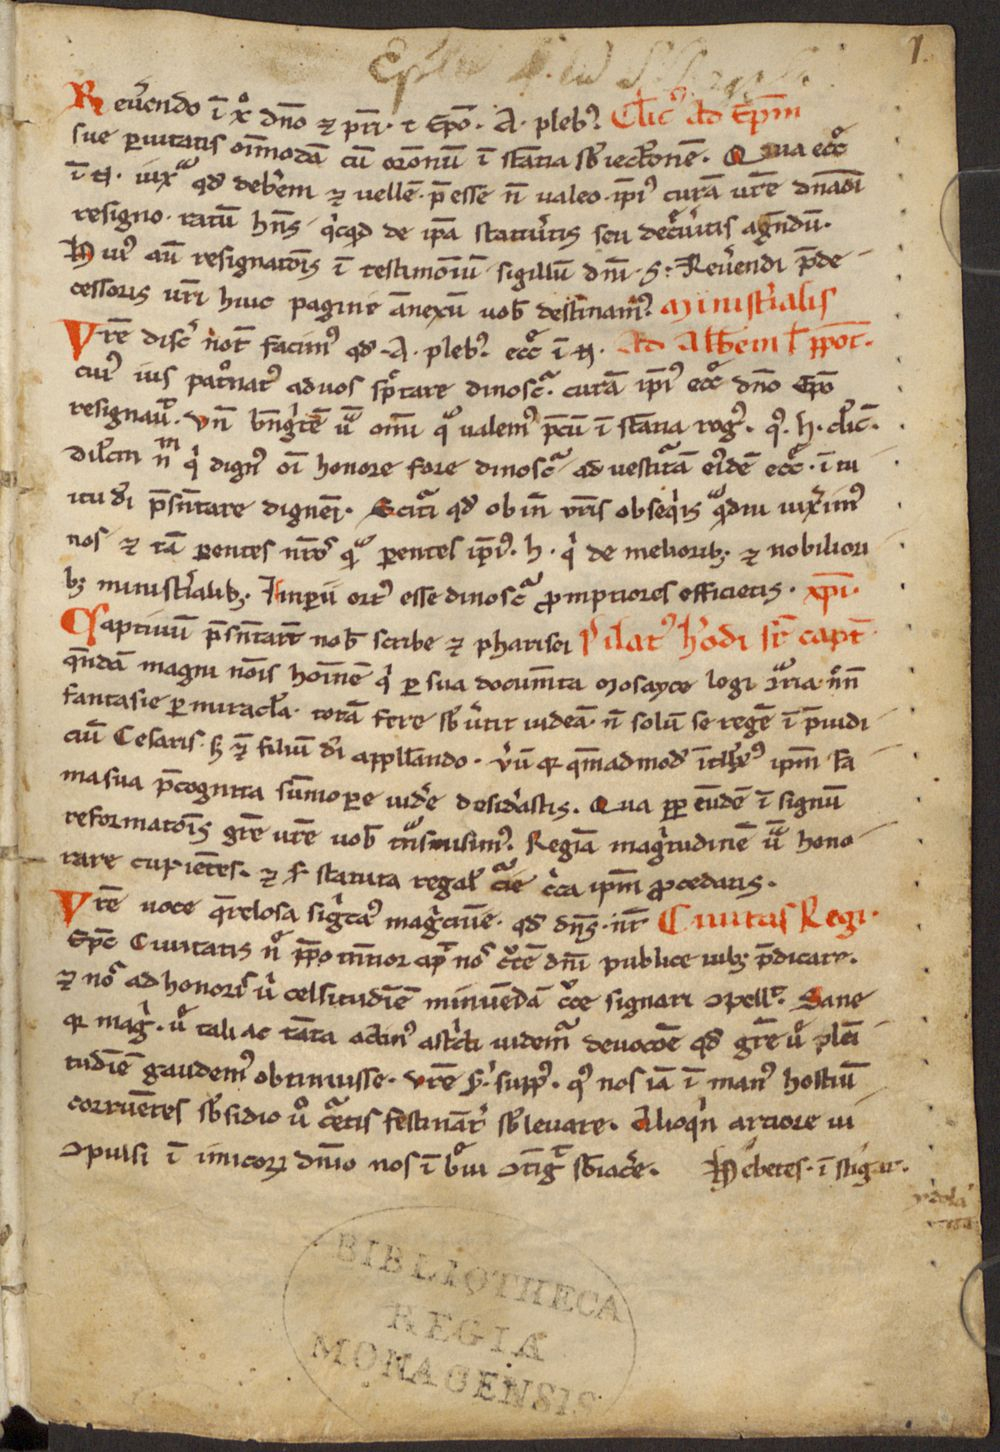 1.
Reu̅endo i̅ xͦ dn̅o ⁊ pr̅i · t ep̅o · A · plebꝰ. Cl̅icꝰ Ad Ep̅m
sue ꝑuitatis oi̅moda̅ cu̅ oro̅nu̅ i̅ sta̅tia sb̅iectᷠone̅. Qua eccͤ
i̅ N. uix qd̅ debe̅m ⁊ uelle̅ p̅esse n̅ ualeo ip̅iꝰ cura̅ ur̅e dn̅ac̅oi
resigno · ratu̅ hn̅s qͥcqd de ip̅a statueͥtis seu decͥueͥtis agn̅du̅.
Huiꝰ au̅ resignato̅is i̅ testimo̅iu̅ sigillu̅ dn̅i · S · Reue̅ndi p̅de
cessoris ur̅i huic pagine a̅nexu̅ uob̅ destinamꝰ. Ministialis
Vr̅e disc̅ not̅ facimꝰ qd̅ · A · plebꝰ. eccͤ i̅ N. Ad Alb̅em l̅ ppo̅t.
cuiꝰ ius patͦnatꝰ ad uos spc̅tare dinoscᷓ. cura̅ ip̅iꝰ eccͤ dn̅o Ep̅o
resignauͥ. Vn̅ bn̅gͥte̅ uᷓ om̅i qͦ ualemꝰ p̅cu̅ i̅ sta̅tia rogꝰ. qꝰ. h. cl̅ic̅.
dilc̅m n̅m qͥ dignꝰ oi̅ honore fore dinoscᷓ ad uestitᷓa̅ eiꝰde̅ eccͤ. i̅ tu
itu di̅ p̅sn̅tare digne̅i. Scitᷓ qd̅ ob in̅ ur̅is obseqͥis qᷓdiu uixͥimꝰ
nos ⁊ ta̅ ꝑentes nr̅os qᷓ ꝑentes ip̅iꝰ. h. qͥ de meliorib; ⁊ nobiliori
b; ministͥalib; Impii ortꝰ esse dinoscᷓ ꝓmptiores efficietis. xp̅i.
Captiuu̅ p̅sn̅tar̅t nob̅ scribe ⁊ pharisei Pilatꝰ h̓odi sr̅ capt̅
qn̅da̅ magni no̅is hoi̅ne̅ qͥ ꝑ sua docum̅ta Mosayce legi ꝯᷓria · n̅n
fantasie ꝑ miracl̅a. tota̅ fere sb̅uͥtit iudea̅. n̅ solu̅ se rege̅ i̅ p̅iudi
ciu̅ Cesaris. s; ⁊ filiu̅ di̅ appll̅ando. Vͥu̅ qr qm̅admod̅ i̅tll̅xꝰ ip̅m fa
ma sua p̅cognita su̅moꝑe uide̅ desidͥastis. Qua ꝓp̅ eu̅de̅ i̅ signu̅
reformato̅is gr̅e ur̅e uob̅ tn̅smisimꝰ. Regia̅ magͥtudine̅ uᷓ hono
rare cupie̅tes. ⁊ s̅ statuta regal̅ c̅ie cͥca ip̅m ꝓcedatis.
Vr̅e uoce qr̅elosa sigͥtcaꝰ magͥciu̅e. qd̅ dn̅s · nr̅ Ciuitas Regi.
Ep̅c Ciuitatis nͦ pp̅o tn̅tior cap̅ noͣ cͦte̅ dn̅i publice iub; p̅dicare.
⁊ noͣ ad honorͥs uͥ celsitudi̅e̅ minue̅da̅ cͦce signari ꝯpellͥ. Sane
qr magͥ. uͦ tali ac ta̅ta acti̅nꝰ astͥcti uidemᷓ deuoco̅e qd̅ gr̅e uͦ ple̅i
tudi̅e̅ gaudemꝰ obtinuisse. Vr̅e sͥ. suppͥ. qꝰ nos ia̅ i̅ manꝰ hostiu̅
corrue̅tes sb̅sidio uͦ cᷓetis festina̅tͥ sb̅leuare. Alioqͥn artiore ui
ꝯpulsi i̅ i̅micoꝝ dn̅io nos i̅ bͦui ꝯtigͥt sb̅iacͤe. Hebetes · i̅ stigat.
BIBLIOTHECA
REGIA
MONACENSIS